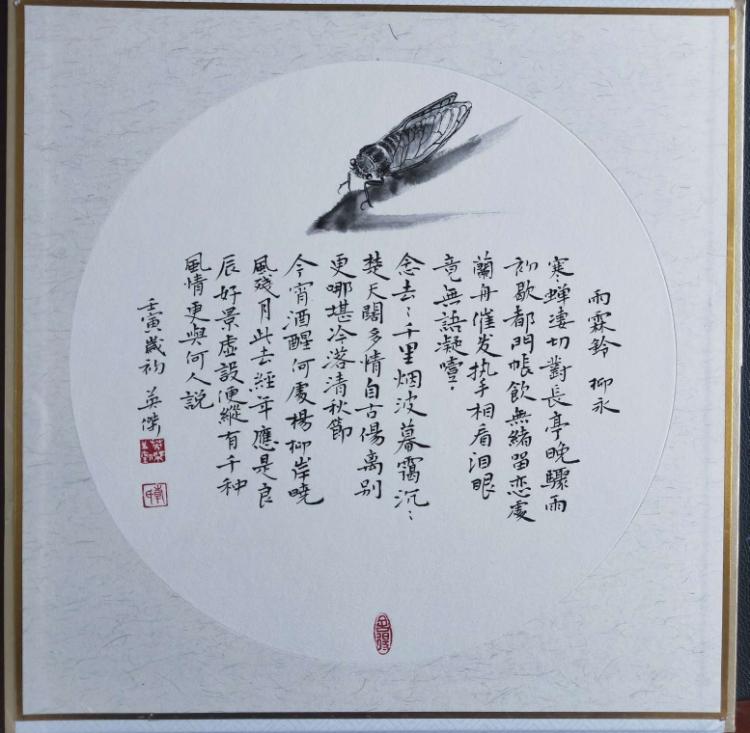 雨霖鈴 柳永
寒蟬淒切對長亭晚驟雨
初歇都門帳飲無緒留恋處
蘭舟催发执手相看泪眼
竟無語凝噎.
念去:千里烟波暮靄沉:
楚天闊多情自古傷离别
更哪堪冷落清秋節
今宵酒醒何處楊柳岸曉
風殘月此去经年應是良
辰好景虛設便縱有千种
風情更與何人説
壬寅歲初 英傑